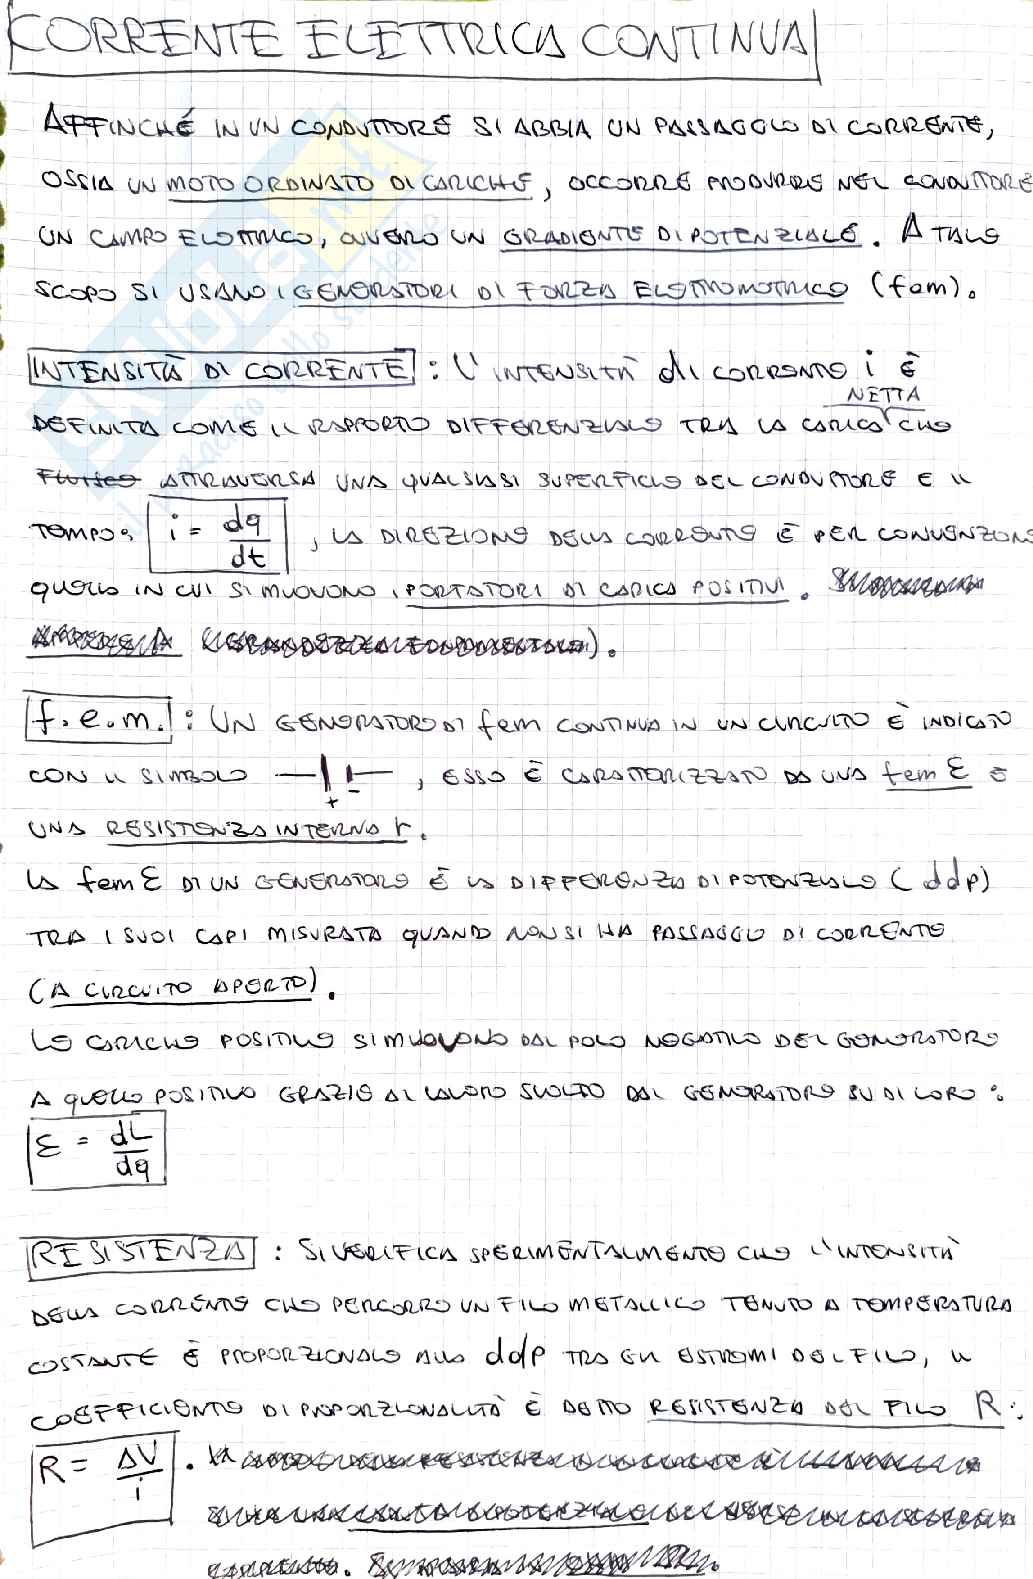 CORRENTE ELETTRICA CONTINUA
AFFINCHÉ IN UN CONDUTTORE SI ABBIA UN PASSAGGIO DI CORRENTE,
OSSIA UN MOTO ORDINATO DI CARICHE, OCCORRE PRODURRE NEL CONDUTTORE
UN CAMPO ELETTRICO, OVVERO UN GRADIENTE DI POTENZIALE. A TALE
SCOPO SI USANO I GENERATORI DI FORZA ELETTROMOTRICE (fem).
INTENSITÀ DI CORRENTE: L'INTENSITÀ di CORRENTE i È
NETTA
DEFINITA COME IL RAPPORTO DIFFERENZIALE TRA LA CARICA CHE
FLUISCE ATTRAVERSA UNA QUALSIASI SUPERFICIE DEL CONDUTTORE E IL
TEMPO: i = dq/dt, LA DIREZIONE DELLA CORRENTE È PER CONVENZIONE
QUELLA IN CUI SI MUOVONO I PORTATORI DI CARICA POSITIVI.
f.e.m.: UN GENERATORE DI fem CONTINUA IN UN CIRCUITO È INDICATO
CON IL SIMBOLO + -, ESSO È CARATTERIZZATO DA UNA fem ℰ E
UNA RESISTENZA INTERNA r.
LA fem ℰ DI UN GENERATORE È LA DIFFERENZA DI POTENZIALE (ddp)
TRA I SUOI CAPI MISURATA QUANDO NON SI HA PASSAGGIO DI CORRENTE
(A CIRCUITO APERTO).
LE CARICHE POSITIVE SI MUOVONO DAL POLO NEGATIVO DEL GENERATORE
A QUELLO POSITIVO GRAZIE AL LAVORO SVOLTO DAL GENERATORE SU DI LORO:
ℰ = dL/dq
RESISTENZA: SI VERIFICA SPERIMENTALMENTE CHE L'INTENSITÀ
DELLA CORRENTE CHE PERCORRE UN FILO METALLICO TENUTO A TEMPERATURA
COSTANTE È PROPORZIONALE ALLA ddp TRA GLI ESTREMI DEL FILO, IL
COEFFICIENTE DI PROPORZIONALITÀ È DETTO RESISTENZA DEL FILO R:
R = ΔV/i.